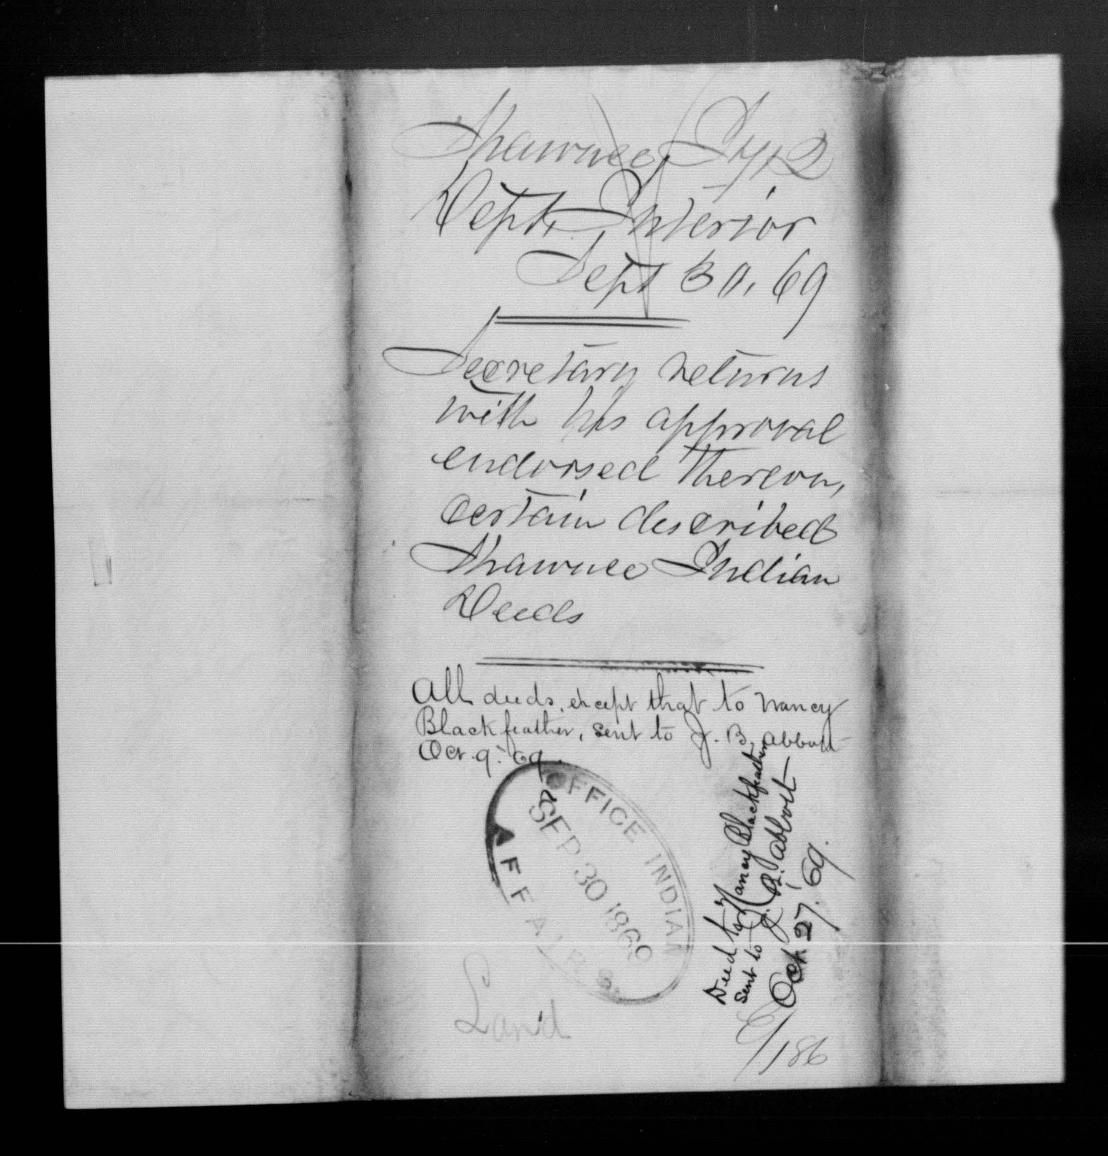 Shawnee,
Dept, Interior
Sept 30, 69
Secretary returns
with his approval
endorsed thereon,
certain described
Shawnee Indian
Deeds
All deeds, except that to Nancy
Blackfeather, sent to J. B. Abbott
Oct. 9. 69.
OFFICE INDIAN
SEP 30 1869
AFFAIRS
Deed to Nancy Blackfeather
sent to J. B. Abbott
Oct. 27. 69.
Land
186